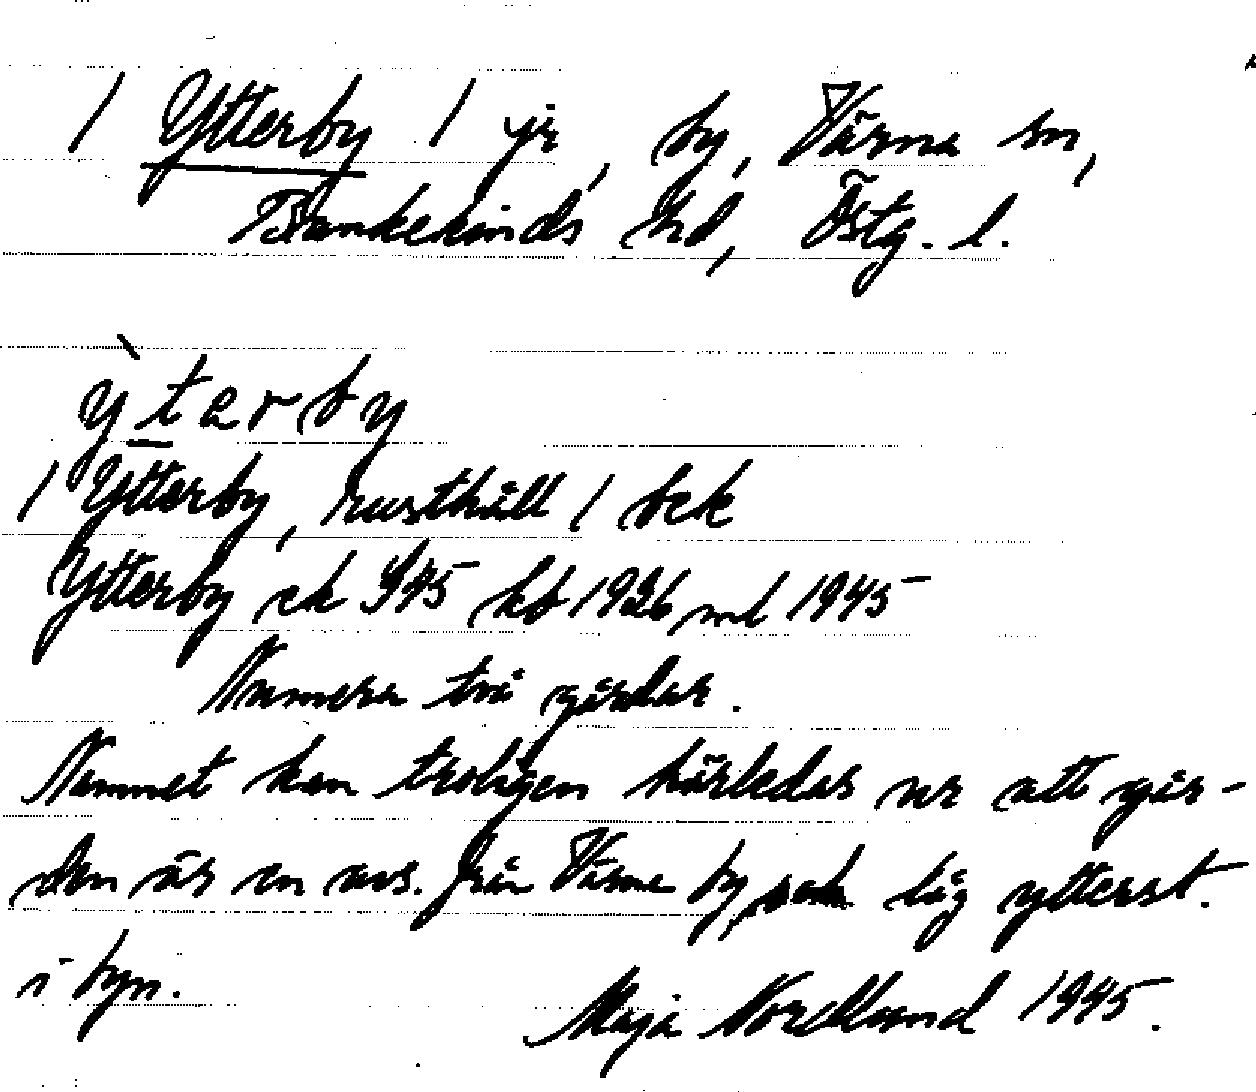 / Ytterby / yr, by, Värna sn,
Bankekinds hd, Östg. l.
ỳtarby
/ Ytterby, rusthåll / bek
Ytterby ek J45 kb 1926 ml 1945
Numera två gårdar.
Namnet kan troligen härledas ur att går-
den är en avs. från Värna by, och låg ytterst.
i byn.
Maja Nordlund 1945.